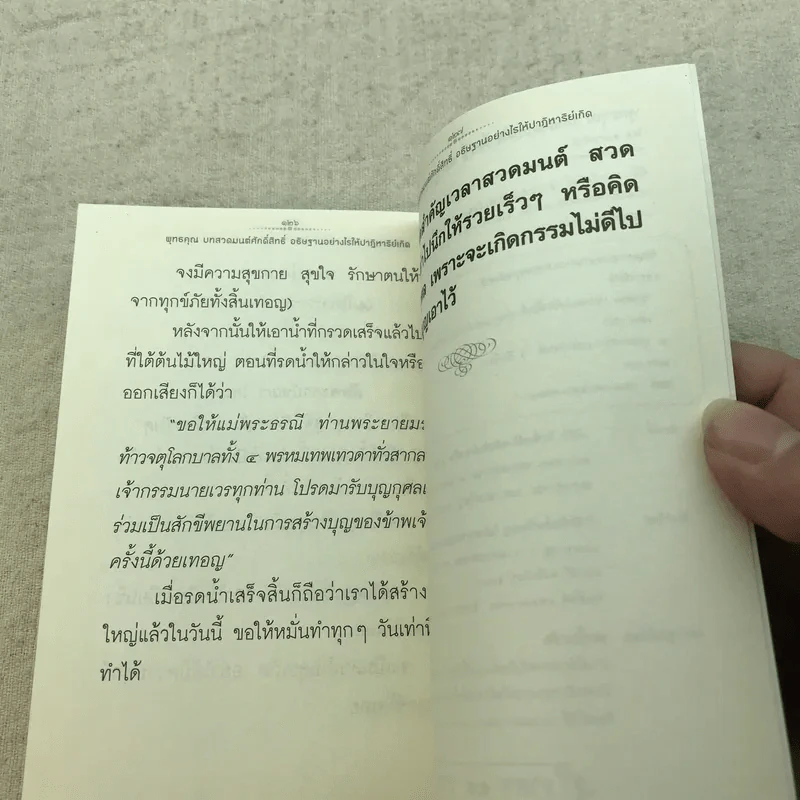 ๑๒๖
พุทธคุณ บทสวดมนต์ศักดิ์สิทธิ์ อธิษฐานอย่างไรให้ปาฏิหาริย์เกิด
จงมีความสุขกาย สุขใจ รักษาตนให้
จากทุกข์ภัยทั้งสิ้นเทอญ)
หลังจากนั้นให้เอาน้ำที่กรวดเสร็จแล้วไป
ที่ใต้ต้นไม้ใหญ่ ตอนที่รดน้ำให้กล่าวในใจหรือ
ออกเสียงก็ได้ว่า
“ขอให้แม่พระธรณี ท่านพระยายม
ท้าวจตุโลกบาลทั้ง ๔ พรหมเทพเทวดาทั่วสากล
เจ้ากรรมนายเวรทุกท่าน โปรดมารับบุญกุศล
ร่วมเป็นสักขีพยานในการสร้างบุญของข้าพเจ้
ครั้งนี้ด้วยเทอญ”
เมื่อรดน้ำเสร็จสิ้นก็ถือว่าเราได้สร้าง
ใหญ่แล้วในวันนี้ ขอให้หมั่นทำทุกๆ วันเท่าที
ทำได้
๑๒๗
ศักดิ์สิทธิ์ อธิษฐานอย่างไรให้ปาฏิหาริย์เกิด
สำคัญเวลาสวดมนต์ สวด
ไปนึกให้รวยเร็วๆ หรือคิด
เพราะจะเกิดกรรมไม่ดีไป
เอาไว้